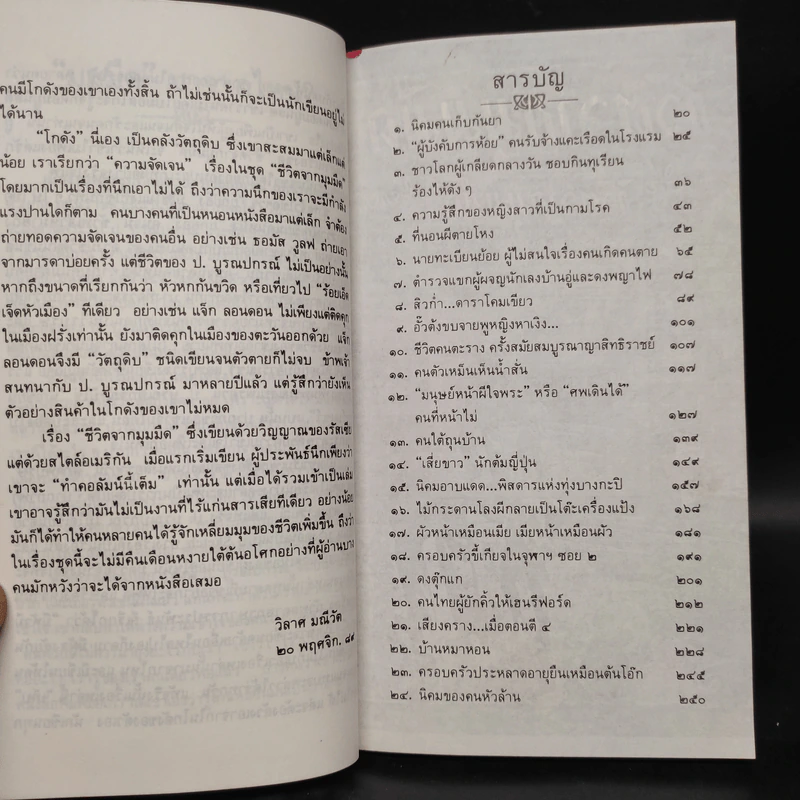 คนมีโกดังของเขาเองทั้งสิ้น ถ้าไม่เช่นนั้นก็จะเป็นนักเขียนอยู่ไม่
ได้นาน
“โกดัง” นี่เอง เป็นคลังวัตถุดิบ ซึ่งเขาสะสมมาแต่เล็กแต่
น้อย เราเรียกว่า “ความจัดเจน” เรื่องในชุด “ชีวิตจากมุมมืด”
โดยมากเป็นเรื่องที่นึกเอาไม่ได้ ถึงว่าความนึกของเราจะมีกำลัง
แรงปานใดก็ตาม คนบางคนที่เป็นหนอนหนังสือมาแต่เล็ก จำต้อง
ถ่ายทอดความจัดเจนของคนอื่น อย่างเช่น ธอมัส วูลฟ ถ่ายเอา
จากมารดาบ่อยครั้ง แต่ชีวิตของ ป. บูรณปกรณ์ ไม่เป็นอย่างนั้น
หากถึงขนาดที่เรียกกันว่า หัวหกก้นขวิด หรือเที่ยวไป “ร้อยเอ็ด
เจ็ดหัวเมือง” ทีเดียว อย่างเช่น แจ็ก ลอนดอน ไม่เพียงแต่ติดคุก
ในเมืองฝรั่งเท่านั้น ยังมาติดคุกในเมืองของตะวันออกด้วย แจ็ก
ลอนดอนจึงมี “วัตถุดิบ” ชนิดเขียนจนตัวตายก็ไม่จบ ข้าพเจ้า
สนทนากับ ป. บูรณปกรณ์ มาหลายปีแล้ว แต่รู้สึกว่ายังเห็น
ตัวอย่างสินค้าในโกดังของเขาไม่หมด
เรื่อง “ชีวิตจากมุมมืด” ซึ่งเขียนด้วยวิญญาณของรัสเซีย
แต่ด้วยสไตล์อเมริกัน เมื่อแรกเริ่มเขียน ผู้ประพันธ์นึกเพียงว่า
เขาจะ “ทำคอลัมน์นี้เต็ม” เท่านั้น แต่เมื่อได้รวมเข้าเป็นเล่ม
เขาอาจรู้สึกว่ามันไม่เป็นงานที่ไร้แก่นสารเสียทีเดียว อย่างน้อย
มันก็ได้ทำให้คนหลายคนได้รู้จักเหลี่ยมมุมของชีวิตเพิ่มขึ้น ถึงว่า
ในเรื่องชุดนี้จะไม่มีคืนเดือนหงายใต้ต้นอโศกอย่างที่ผู้อ่านบาง
คนมักหวังว่าจะได้จากหนังสือเสมอ
วิลาศ มณีวัต
๒๐ พฤศจิก. ๘๙
สารบัญ
๑. นิคมคนเก็บกันยา ๒๐
๒. “ผู้บังคับการห้อย” คนรับจ้างแคะเรือดในโรงแรม ๒๕
๓. ชาวโลกผู้เกลียดกลางวัน ชอบกินทุเรียน
ร้องไห้ดัง ๆ ๓๖
๔. ความรู้สึกของหญิงสาวที่เป็นกามโรค ๔๓
๕. ที่นอนผีตายโหง ๕๒
๖. นายทะเบียนย้อย ผู้ไม่สนใจเรื่องคนเกิดคนตาย ๖๕
๗. ตำรวจแขกผู้ผจญนักเลงบ้านอู่และดงพญาไฟ ๗๘
๘. สิวก่ำ...ดาราโคมเขียว ๘๙
๙. อั๊วตั้งขบจายพูหญิงหาเงิง... ๑๐๑
๑๐. ชีวิตคนตะราง ครั้งสมัยสมบูรณาญาสิทธิราชย์ ๑๐๗
๑๑. คนตัวเหมืนเห็นน้ำสั่น ๑๑๗
๑๒. “มนุษย์หน้าผีใจพระ” หรือ “ศพเดินได้”
คนที่หน้าไม่ ๑๒๗
๑๓. คนใต้ถุนบ้าน ๑๓๙
๑๔. “เสี่ยขาว” นักต้มญี่ปุ่น ๑๔๙
๑๕. นิคมอาบแดด...พิสดารแห่งทุ่งบางกะปิ ๑๕๗
๑๖. ไม้กระดานโลงผีกลายเป็นโต๊ะเครื่องแป้ง ๑๖๘
๑๗. ผัวหน้าเหมือนเมีย เมียหน้าเหมือนผัว ๑๘๑
๑๘. ครอบครัวขี้เกียจในจุฬาฯ ซอย ๒ ๑๙๑
๑๙. ดงตุ๊กแก ๒๐๑
๒๐. คนไทยผู้ยักคิ้วให้เฮนรีฟอร์ด ๒๑๒
๒๑. เสียงคราง...เมื่อตอนตี ๔ ๒๒๑
๒๒. บ้านหมาหอน ๒๒๘
๒๓. ครอบครัวประหลาดอายุยืนเหมือนต้นโอ๊ก ๒๔๕
๒๔. นิคมของคนหัวล้าน ๒๕๐